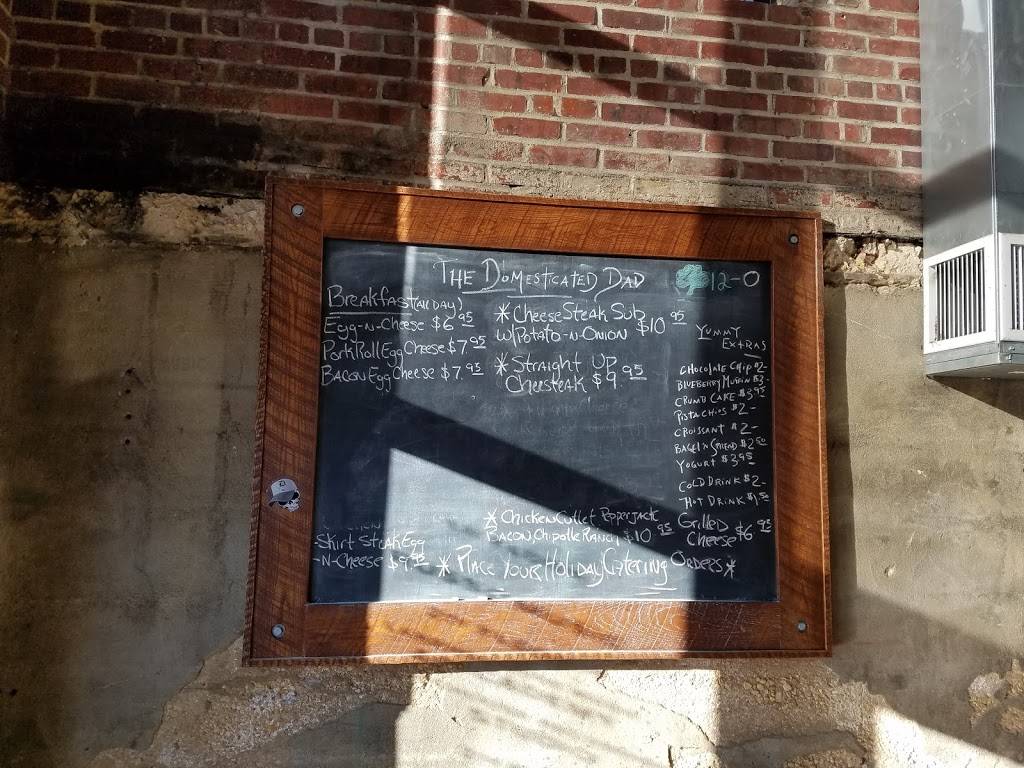 THE DOMESTICATED DAD
12-0
Breakfast (ALL DAY)
Egg-N-Cheese $6.95
Pork Roll Egg Cheese $7.95
Bacon Egg Cheese $7.95
* Cheese Steak Sub
W/Potato-N-Onion $10.95
* Straight Up
Cheesteak $9.95
Yummy
Extras
Chocolate Chip $2-
Blueberry Muffin $3-
Crumb Cake $3.95
Pistachios $2-
Croissant $2-
Yogurt $3.95
Cold Drink $2-
Hot Drink $1.50
Grilled
Cheese $6.95
* Chicken Cutlet Pepperjack
Bacon, Chipotle Ranch $10.95
Skirt Steak Egg
-N-Cheese $9.95
* Place Your Holiday Catering Orders *